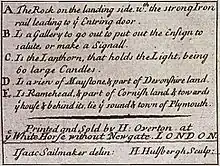 A. The Rock on the landing side, wth. the strong Iron
rail leading to ye Entring door.
B. Is a Gallery to go out to put out the Ensign to
salute, or make a Signall.
C. Is the Lanthorn, that holds the Light, being
60 large Candles.
D. A view of Plimstone, & part of Devonshire land.
E. Is Ramehead, & part of Cornish land, & towards
ye house & behind it, lie ye sound & town of Plymouth.
Printed and Sold by H: Overton at
ye White Horse Without Newgate LONDON.
Isaac Sailmaker delin: H: Hulsbergh Sculp: